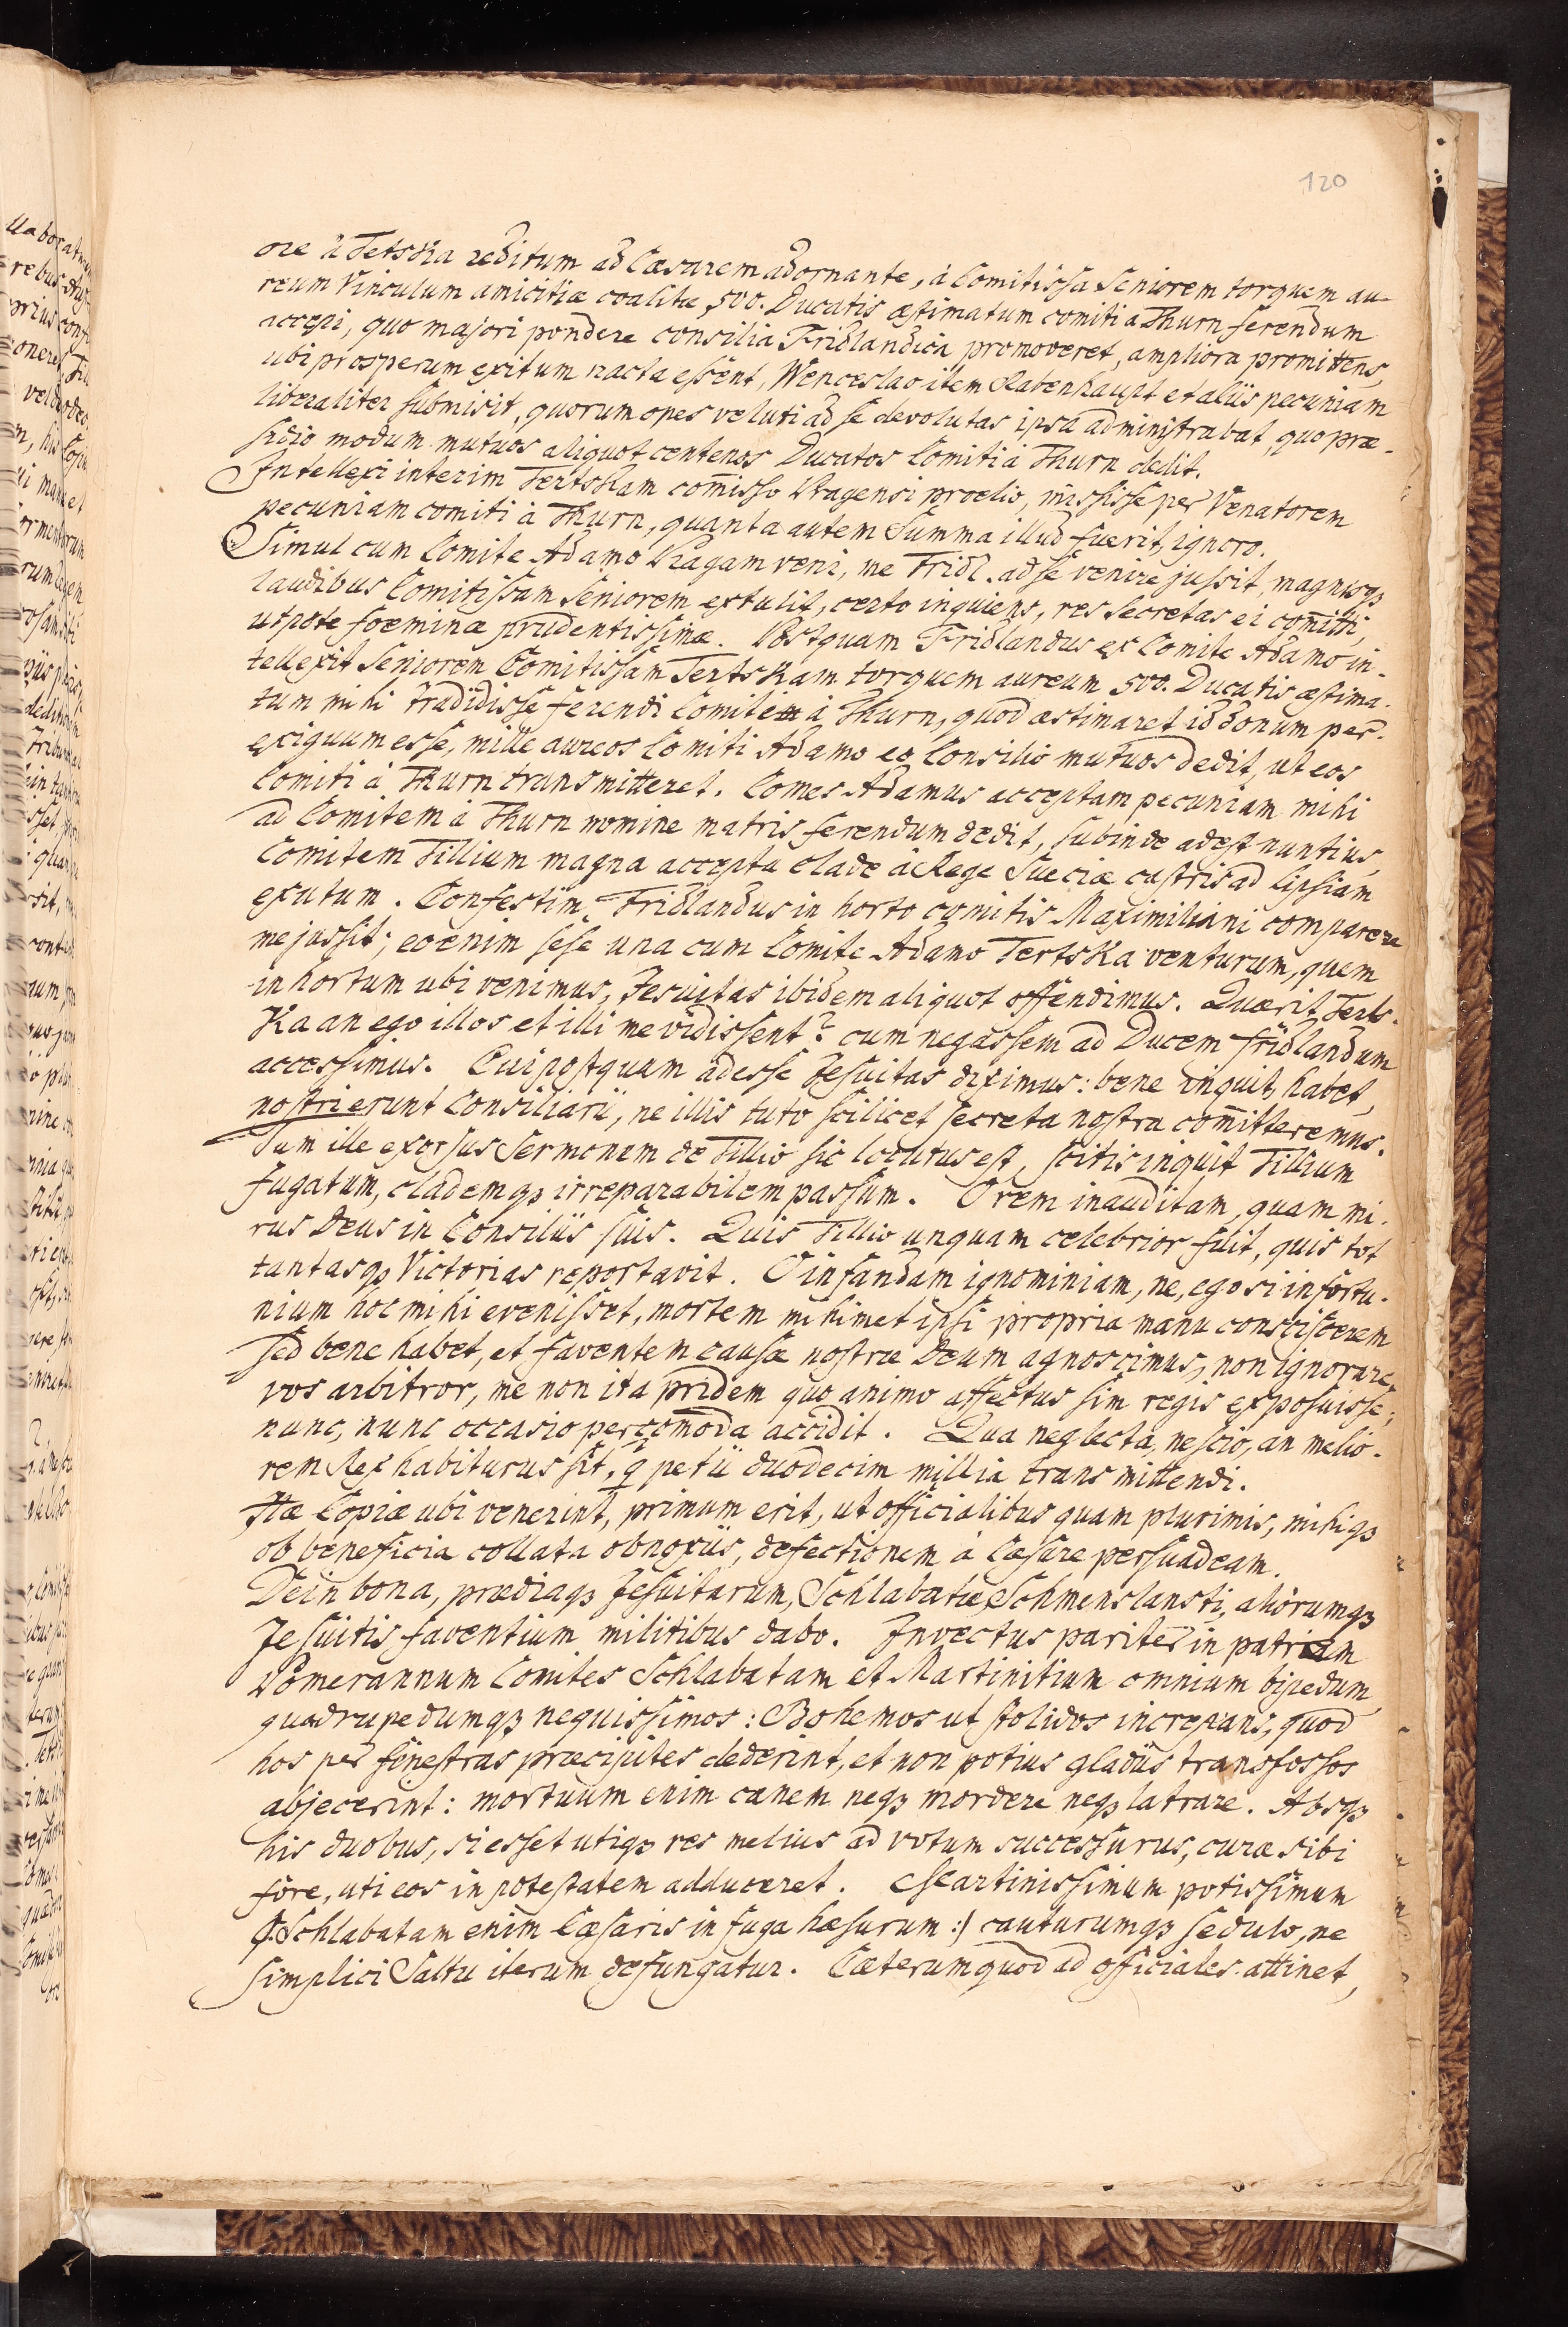 120
ore à Tetska reditum ad Cæsarem adornante, à Comitissa Seniorem torquem au-
reum Vinculum amicitiæ coalitæ 500. Ducatis æstimatum comiti à Thurn ferendum
accepi, quo majori pondere consilia Fridlandica promoveret, ampliora promittens,
ubi prosperum exitum nacta essent, Wenceslao item Rabenhaupt et aliis pecuniam
liberaliter submisit, quorum opes veluti ad se devolutas ipsa administrabat, quo præ-
sidio modum mutuos aliquot centenos Ducatos Comiti à Thurn dedit.
Intellexi interim Tertskam com̄isso Pragensi prœlio, misisse per Venatorem
pecuniam comiti à Thurn, quanta autem Summa illud fuerit, ignoro.
Simul cum Comite Adamo Pragam veni, me Fridl. ad se venire jussit, magnisqꝫ
laudibus Comitissam Seniorem extulit, certo inquiens, res secretas ei com̄itti,
utpote foeminæ prudentissimæ. Postquam Fridlandus ex Comite Adamo in-
tellexit Seniorem Comitissam Tertskam torquem aureum 500. Ducatis æstima-
tum mihi tradidisse ferendi Comitem à Thurn, quod æstimaret id donum per-
exiguum esse, mille aureos Comiti Adamo eo Consilio mutuos dedit, ut eos
Comiti à Thurn transmitteret. Comes Adamus acceptam pecuniam mihi
ad Comitem à Thurn nomine matris ferendum dedit, subinde adest nuntius,
Comitem Tillium magna accepta clade à Rege Sueciæ castris ad Lipsiam
exutum. Confestim Fridlandus in horto comitis Maximiliani comparere
me jussit; eo enim sese una cum Comite Adamo Tertska venturum, quem
in hortum ubi venimus, Jesuitas ibidem aliquot offendimus. Quærit Terts-
Ka an ego illos et illi me vidissent? cum negassem ad Ducem fridlandum
accessimus. Cui postquam adesse Jesuitas diximus: bene inquit, habet,
nostri erunt Consiliarii, ne illis tuto scilicet secreta nostra com̄itteremus.
Tum ille exorsus Sermonem de Tillio sic locutus est, scitis inquit Tillium
fugatum, clademqꝫ irreparabilem passum. O rem inauditam, quam mi-
rus Deus in Consiliis suis. Quis Tillio unquam celebrior fuit, quis tot
tantasqꝫ Victorias reportavit. O infandam ignominiam, ne, ego si infortu-
nium hoc mihi evenisset, mortem mihimet ipsi propria manu consciscerem
sed bene habet, et faventem causæ nostræ Deum agnoscimus, non ignorare
vos arbitror, me non ita pridem quo animo affectus sim regis exposuisse;
nunc, nunc occasio percom̄oda accidit. Qua neglecta, nescio, an melio-
rem Rex habiturus sit, q̄ petii duodecim millia transmittendi.
Hæ Copiæ ubi venerint, primum erit, ut officialibus quam plurimis, mihiqꝫ
ob beneficia collata obnoxiis, defectionem à Cæsare persuadeam.
Dein bona, prædiaqꝫ Jesuitarum, Schlabatæ, Schmenslansti, aliorumqꝫ
Jesuitis faventium militibus dabo. Invectus pariter in patriam
Pomerannum Comites Schlabatam et Martinitium omnium bipedum
quadrupedumqꝫ nequissimos: Bohemos ut stolidos increpans, quod
hos per fenestras præcipites dederint, et non potius gladiis transfossos
abjecerint: mortuum enim canem neqꝫ mordere neqꝫ latrare. Absqꝫ
his duobus, si esset utiqꝫ res melius ad votum successurus, curæ sibi
fore, uti eos in potestatem adduceret. Martinissimum potissimum
(: Schlabatam enim Cæsaris in fuga hæsurum :) cauturumqꝫ sedulo, ne
simplici Saltu iterum defungatur. Cæterum quod ad officiales attinet,